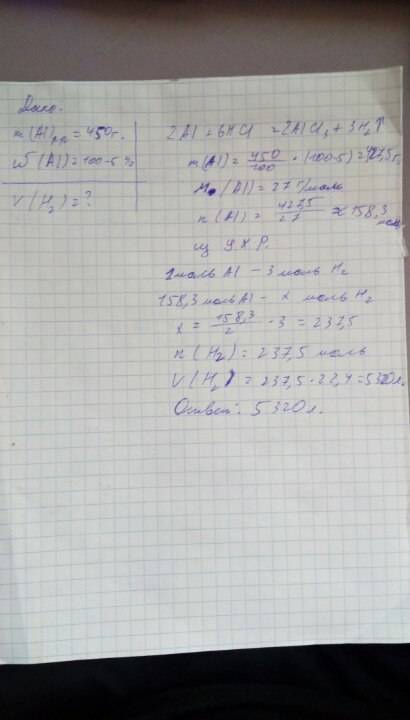 Дано:
m(Al)р.р = 450г.
ω(Al) = 100-5%
V(H₂) = ?
2Al = 6HCl = 2AlCl₃ + 3H₂↑
m(Al) = 450/100 · (100-5) = 427,5г.
M (Al) = 27 г/моль
n (Al) = 427,5/27 ≈ 158,3 моль
из У.Х.Р.
2моль Al – 3 моль H₂
158,3 моль Al – x моль H₂
x = 158,3/2 · 3 = 237,5
n (H₂) = 237,5 моль
V (H₂) = 237,5 · 22,4 = 5320л.
Ответ: 5320л.